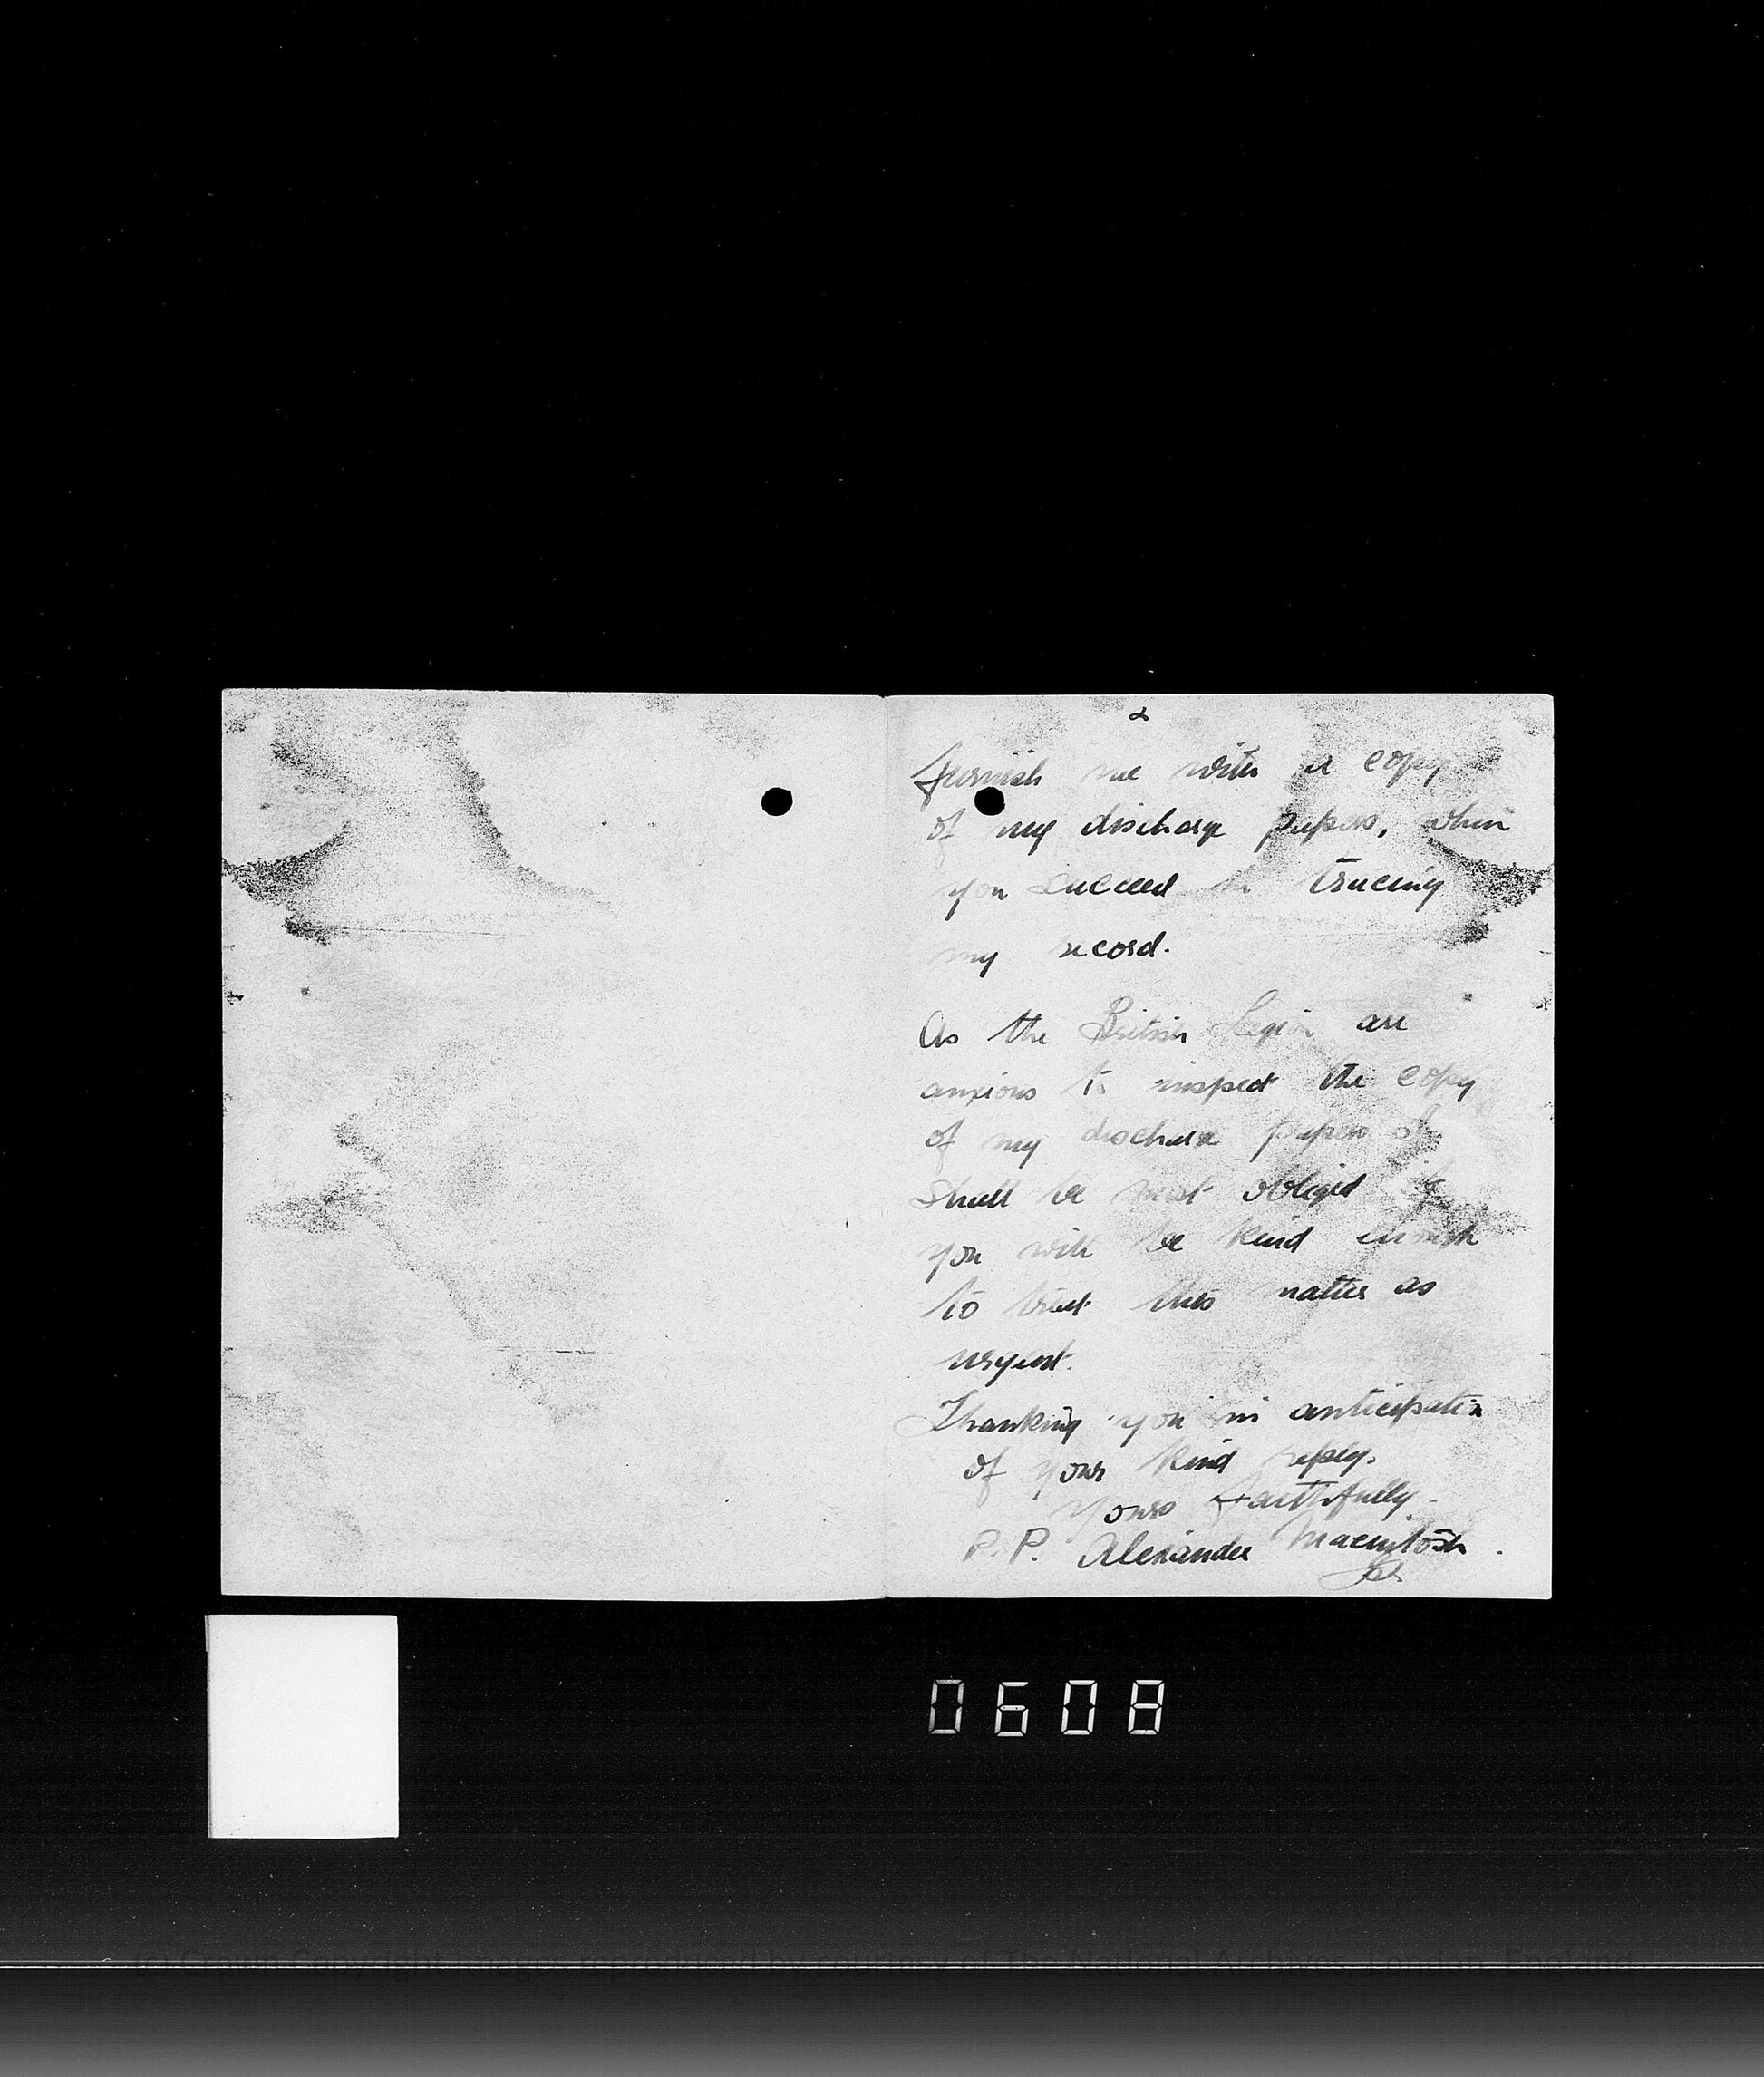 2
furnish me with a copy
of my discharge papers, when
you succeed in tracing
my record.
As the British Legion are
anxious to inspect the copy
of my discharge papers I
shall be most obliged if
you will be kind enough
to treat this matter as
urgent.
Thanking you in anticipation
of your kind reply.
Yours faithfully.
P.P. Alexander Macintosh.
0608
(c) Crown Copyright Images reproduced by courtesy of The National Archives, London, England.